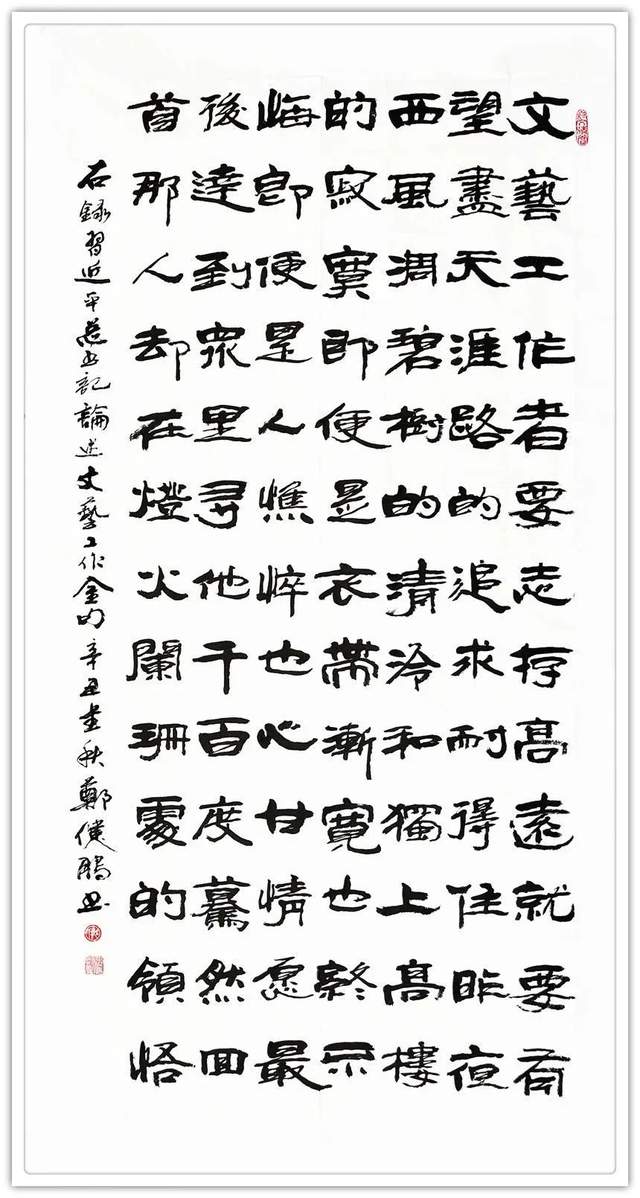 文藝工作者要志存高遠就要有
望盡天涯路的追求耐得住昨夜
西風凋碧樹的清冷和獨上高樓
的寂寞即便是衣帶漸寬也終不
悔即便是人憔悴也心甘情愿最
後達到衆里尋他千百度驀然回
首那人却在燈火闌珊處的領悟
右錄習近平總書記論述文藝工作金句辛丑秋鄭書